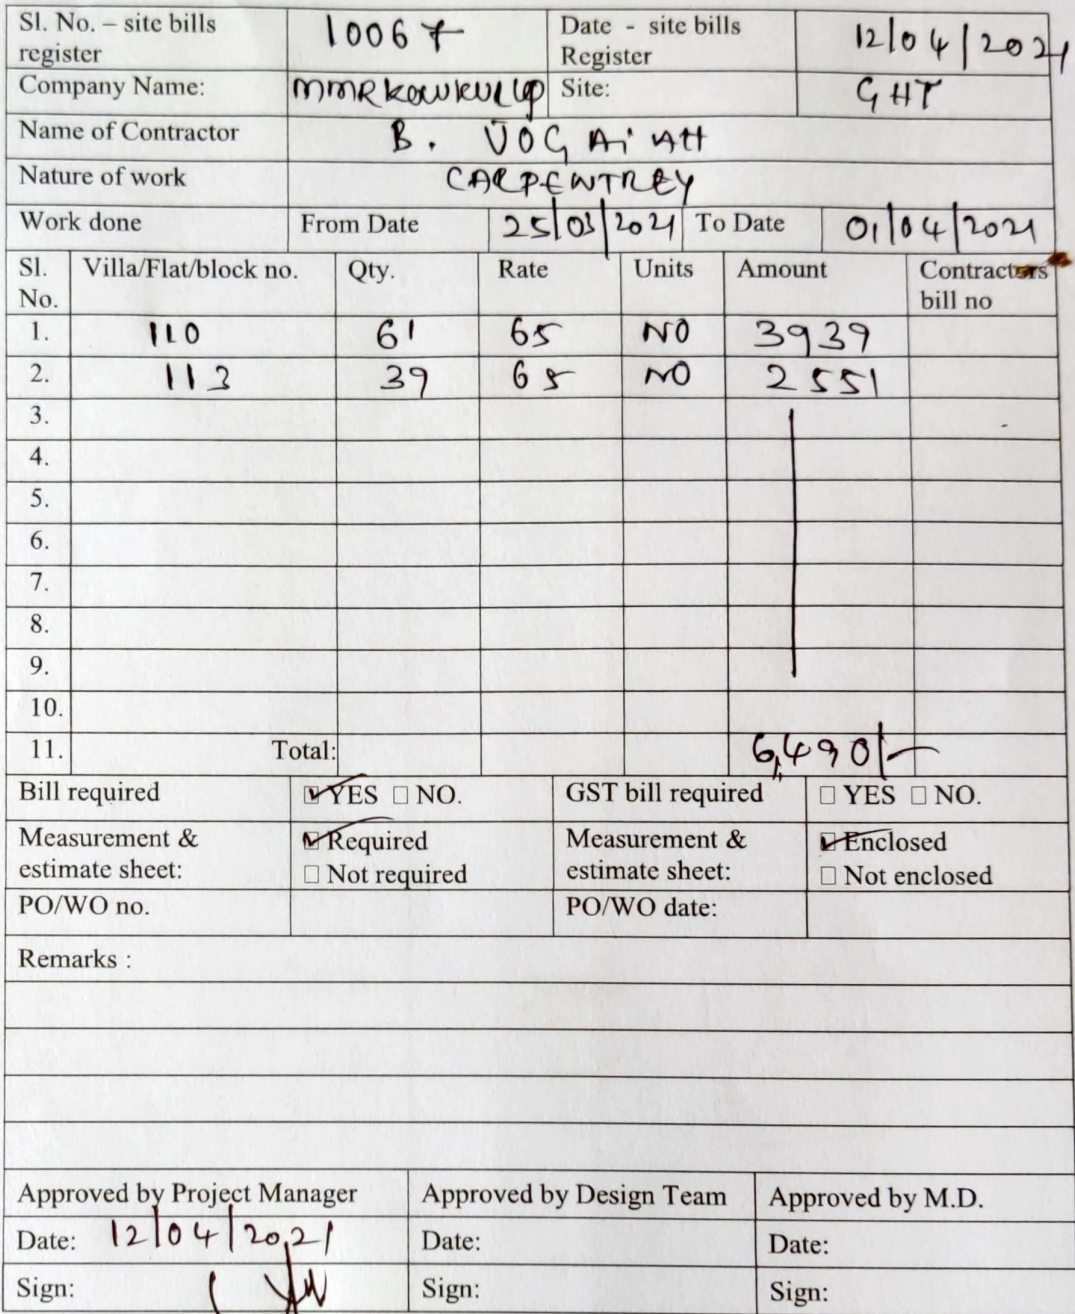 Sl. No. – site bills register 10067 Date - site bills Register 12/04/2021
Company Name: MMR KOWKUR LLP Site: GHT
Name of Contractor B. VOGAiAH
Nature of work CARPENTREY
Work done From Date 25/03/2021 To Date 01/04/2021
Sl. No. Villa/Flat/block no. Qty. Rate Units Amount Contractors bill no
1. 110 61 65 NO 3939
2. 113 39 65 NO 2551
3.
4.
5.
6.
7.
8.
9.
10.
11. Total: 6,490/-
Bill required ☑ YES ☐ NO. GST bill required ☐ YES ☐ NO.
Measurement & estimate sheet: ☑ Required ☐ Not required Measurement & estimate sheet: ☑ Enclosed ☐ Not enclosed
PO/WO no. PO/WO date:
Remarks :
Approved by Project Manager Approved by Design Team Approved by M.D.
Date: 12/04/2021 Date: Date:
Sign: Sign: Sign: